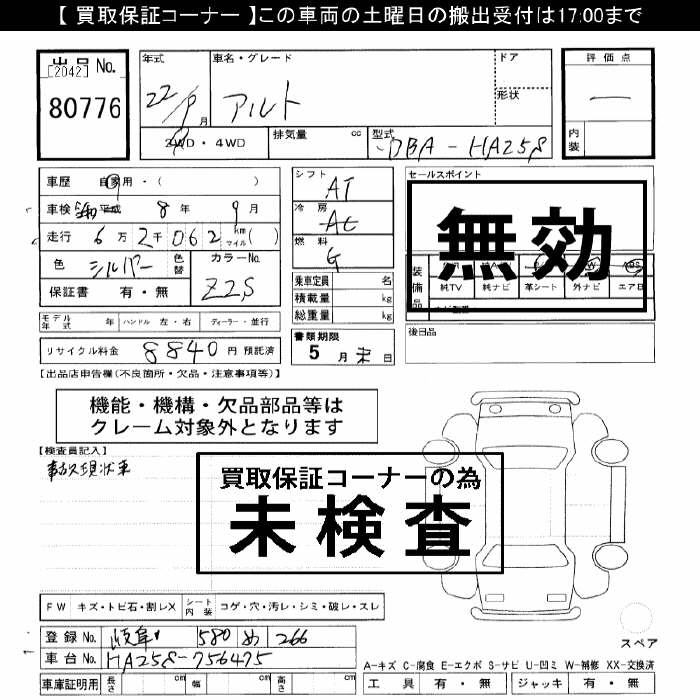 【 買取保証コーナー 】この車両の土曜日の搬出受付は17:00まで
出品 No.
[2042]
80776
年式
22/9 月
車名・グレード
アルト
ドア
形状
評価点
内装
2WD・4WD
排気量 cc
型式
DBA-HA25S
車歴 自家用・( )
車検 8 年 9 月
走行 6 万 2 千 062 km マイル ( )
色 シルバー 色替
カラーNo.
Z2S
保証書 有・無
シフト
AT
冷房
AC
燃料
G
乗車定員 名
積載量 kg
総重量 kg
セールスポイント
無効
装備品
純TV 純ナビ 革シート 外ナビ エア日
モデル年式 年 ハンドル 左・右 ディーラー・並行
リサイクル料金 8840 円 預託済
書類期限
5 月 末 日
後日品
【出品店申告欄(不良箇所・欠品・注意事項等)】
機能・機構・欠品部品等は
クレーム対象外となります
【検査員記入】
事故現状車
買取保証コーナーの為
未検査
FW キズ・トビ石・割レX シート内装 コゲ・穴・汚レ・シミ・破レ・スレ
登録 No. 岐阜 580 め 266
車台 No. HA25S-756475
車庫証明用 長さ cm 幅 cm 高さ cm
スペア
A-キズ C-腐食 E-エクボ S-サビ U-凹ミ W-補修 XX-交換済
工具 有・無 ジャッキ 有・無